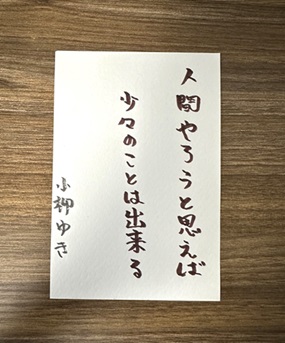 人間やろうと思えば
少々のことは出来る
小柳ゆき